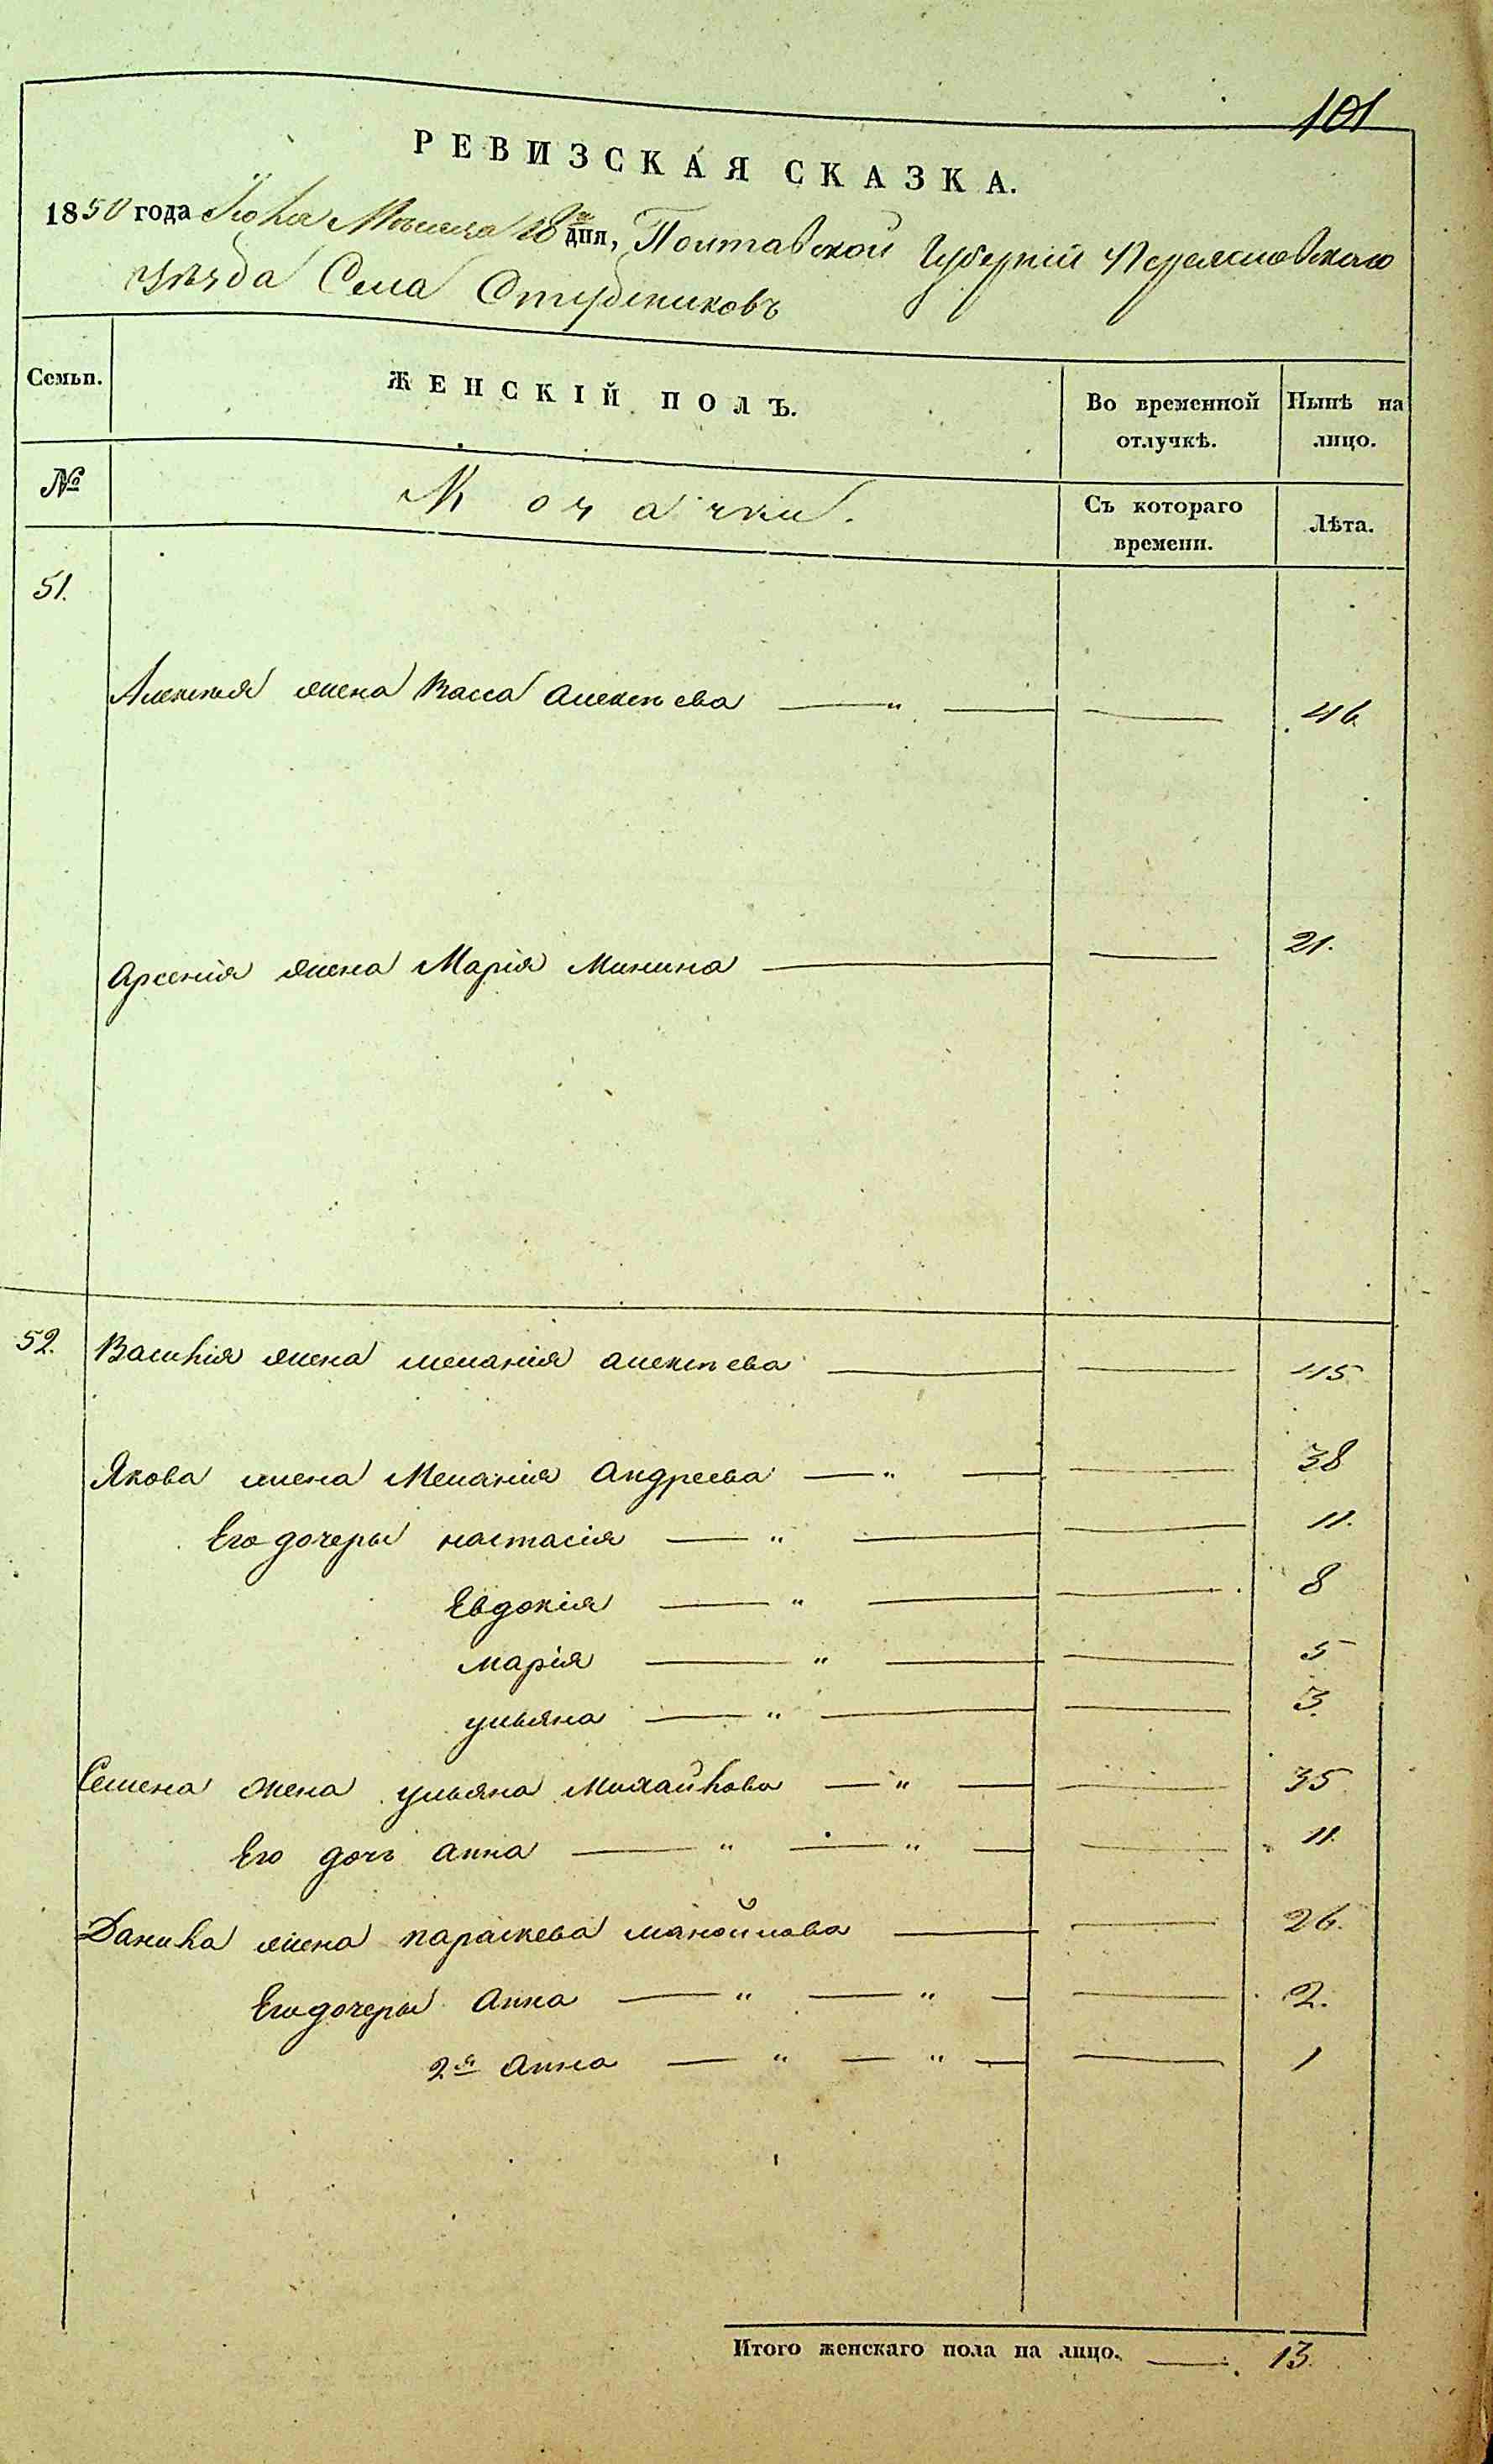 101
РЕВИЗСКАЯ СКАЗКА.
1850 года Июля Месяца 18го дня, Полтавской Губерніи Переясловскаго
уѣзда Села Стубениковъ
Семьи. ЖЕНСКІЙ ПОЛЪ. Во временной отлучкѣ. Нынѣ на лицо.
№ Съ котораго времени. Лѣта.
51.
Алексѣя жена Васса Алексѣева — " — — 46
Арсенія жена Марія Минина — — 21.
52. Василія жена меланія алексѣева — — 45
Якова жена Меланія Андреева — " — — 38
Его дочеры настасія — " — — 11.
Евдокія — " — — 8
марія — " — — 5
ульяна — " — — 3
Семена жена ульяна Михайлова — " — — 35
Его дочь анна — " — " — — 11.
Данила жена параскева манойлова — — 26.
Его дочеры Анна — " — " — — 2.
2я Анна — " — " — — 1
Итого женскаго пола на лицо. — 13.